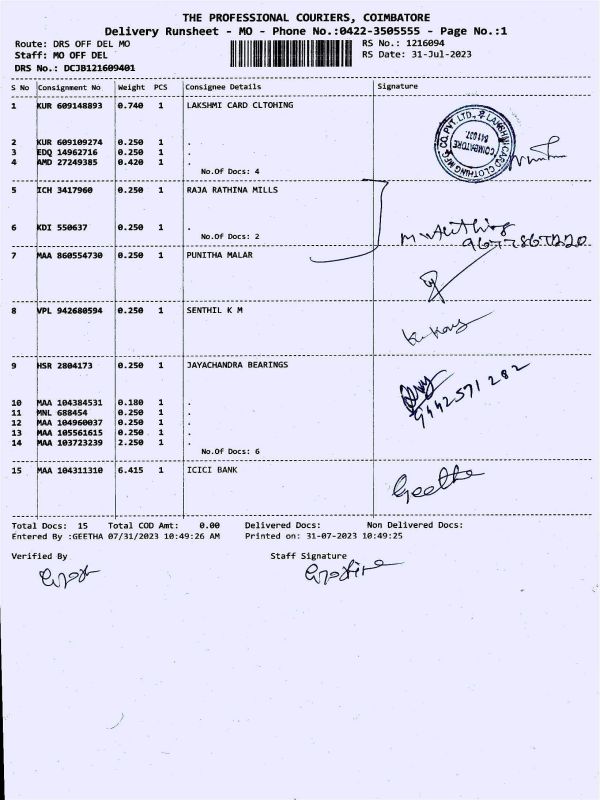 THE PROFESSIONAL COURIERS, COIMBATORE
Delivery Runsheet - MO - Phone No.:0422-3505555 - Page No.:1
Route: DRS OFF DEL MO RS No.: 1216094
Staff: MO OFF DEL RS Date: 31-Jul-2023
DRS No.: DCJB121609401
S No Consignment No Weight PCS Consignee Details Signature
1 KUR 609148893 0.740 1 LAKSHMI CARD CLTOHING
LAKSHMI CARD CLOTHING MFG. CO. PVT. LTD.,
COIMBATORE
641 037.
2 KUR 609109274 0.250 1 .
3 EDQ 14962716 0.250 1 .
4 AMD 27249385 0.420 1 .
No.Of Docs: 4
5 ICH 3417960 0.250 1 RAJA RATHINA MILLS
6 KDI 550637 0.250 1 .
No.Of Docs: 2
7 MAA 860554730 0.250 1 PUNITHA MALAR
8 VPL 942680594 0.250 1 SENTHIL K M
9 HSR 2804173 0.250 1 JAYACHANDRA BEARINGS
9442571282
10 MAA 104384531 0.180 1 .
11 MNL 688454 0.250 1 .
12 MAA 104960037 0.250 1 .
13 MAA 105561615 0.250 1 .
14 MAA 103723239 2.250 1 .
No.Of Docs: 6
15 MAA 104311310 6.415 1 ICICI BANK Geetha
Total Docs: 15 Total COD Amt: 0.00 Delivered Docs: Non Delivered Docs:
Entered By :GEETHA 07/31/2023 10:49:26 AM Printed on: 31-07-2023 10:49:25
Verified By Staff Signature